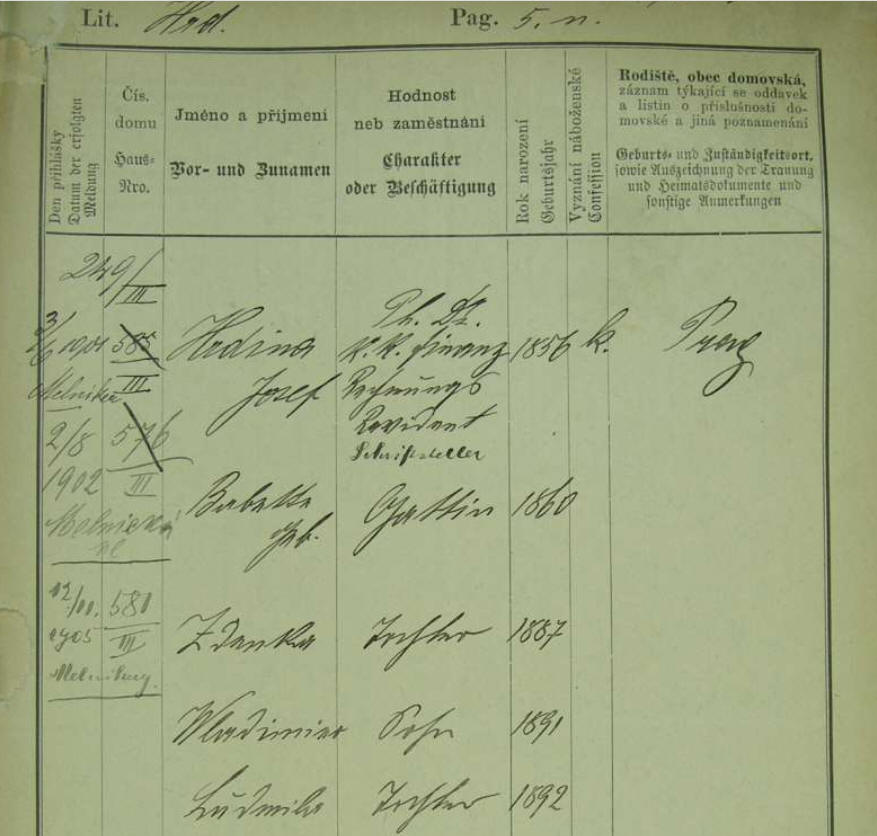 Lit. Hrd. Pag. 5. n.
Den přihlášky
Datum der erfolgten
Meldung
Čís.
domu
Haus-
Nro.
Jméno a příjmení
Vor- und Zunamen
Hodnost
neb zaměstnání
Charakter
oder Beschäftigung
Rok narození
Geburtsjahr
Vyznání náboženské
Confession
Rodiště, obec domovská,
záznam týkající se oddavek
a listin o příslušnosti do-
movské a jiná poznamenání
Geburts- und Zuständigkeitsort,
sowie Auszeichnung der Trauung
und Heimatsdokumente und
sonstige Anmerkungen
249/III
Ph. Dr.
1901 585 Hrdina k. k. Finanz 1856 k. Prag
III Josef Rechnungs
2/8 576 Revident
1902 III Schriftsteller
Babette Gattin 1860
geb.
12/11. 581
1905 III Zdenka Tochter 1887
Wladimir Sohn 1891
Ludmila Tochter 1892